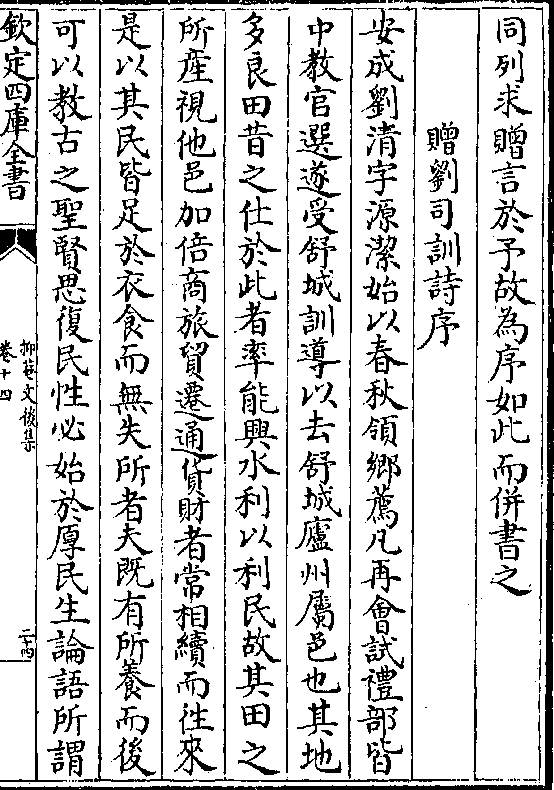 同列求贈言於予故為序如此而併書之
贈劉司訓詩序
安成劉清字源潔始以春秋領鄉薦凡再會試禮部皆
中教官選遂受舒城訓導以去舒城廬州屬邑也其地
多良田昔之仕於此者率能興水利以利民故其田之
所産視他邑加倍商旅貿遷通貨財者常相續而徃來
是以其民皆足於衣食而無失所者夫既有所養而後
可以教古之聖賢思復民性必始於厚民生論語所謂
欽定四庫全書
抑菴文後集
卷十四
二四